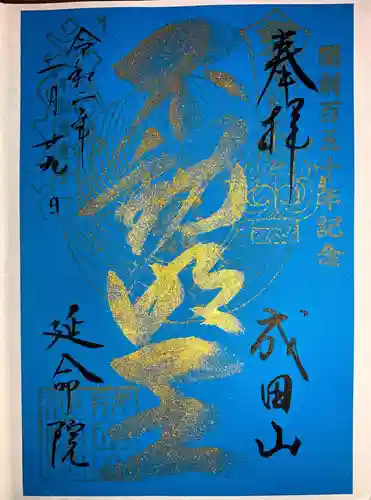 開創百五十年記念
奉拝
成田山
不動明王
令和二年
二月廿九日
延命院